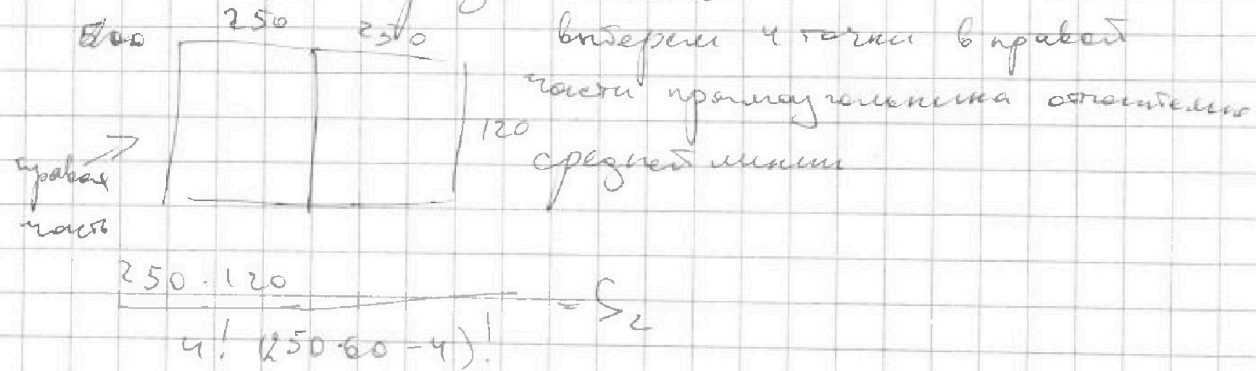 500 250 250
выберем 4 точки в правой
части прямоугольника относительно
120
средней линии
правая
часть
250 · 120
= S₂
4! (250·60 - 4)!